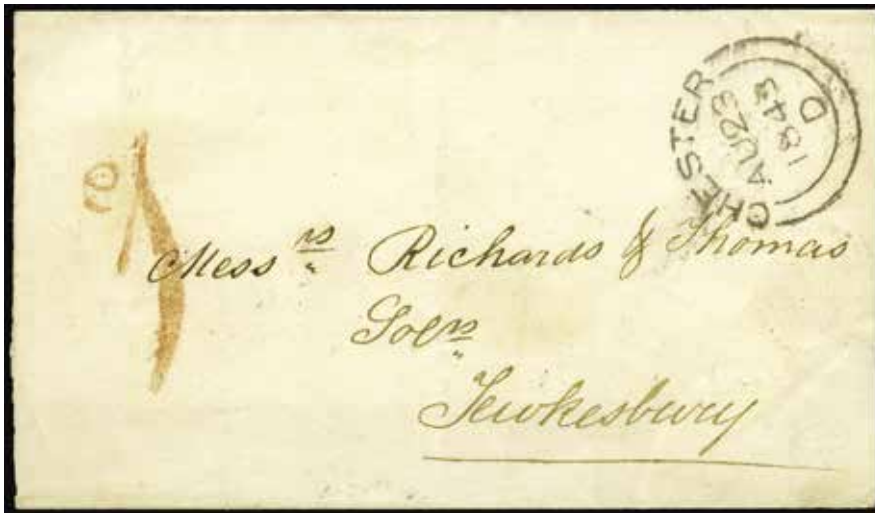 CHESTER
AU 23
1843
D
Mess.rs Richards & Thomas
Solrs
Tewkesbury